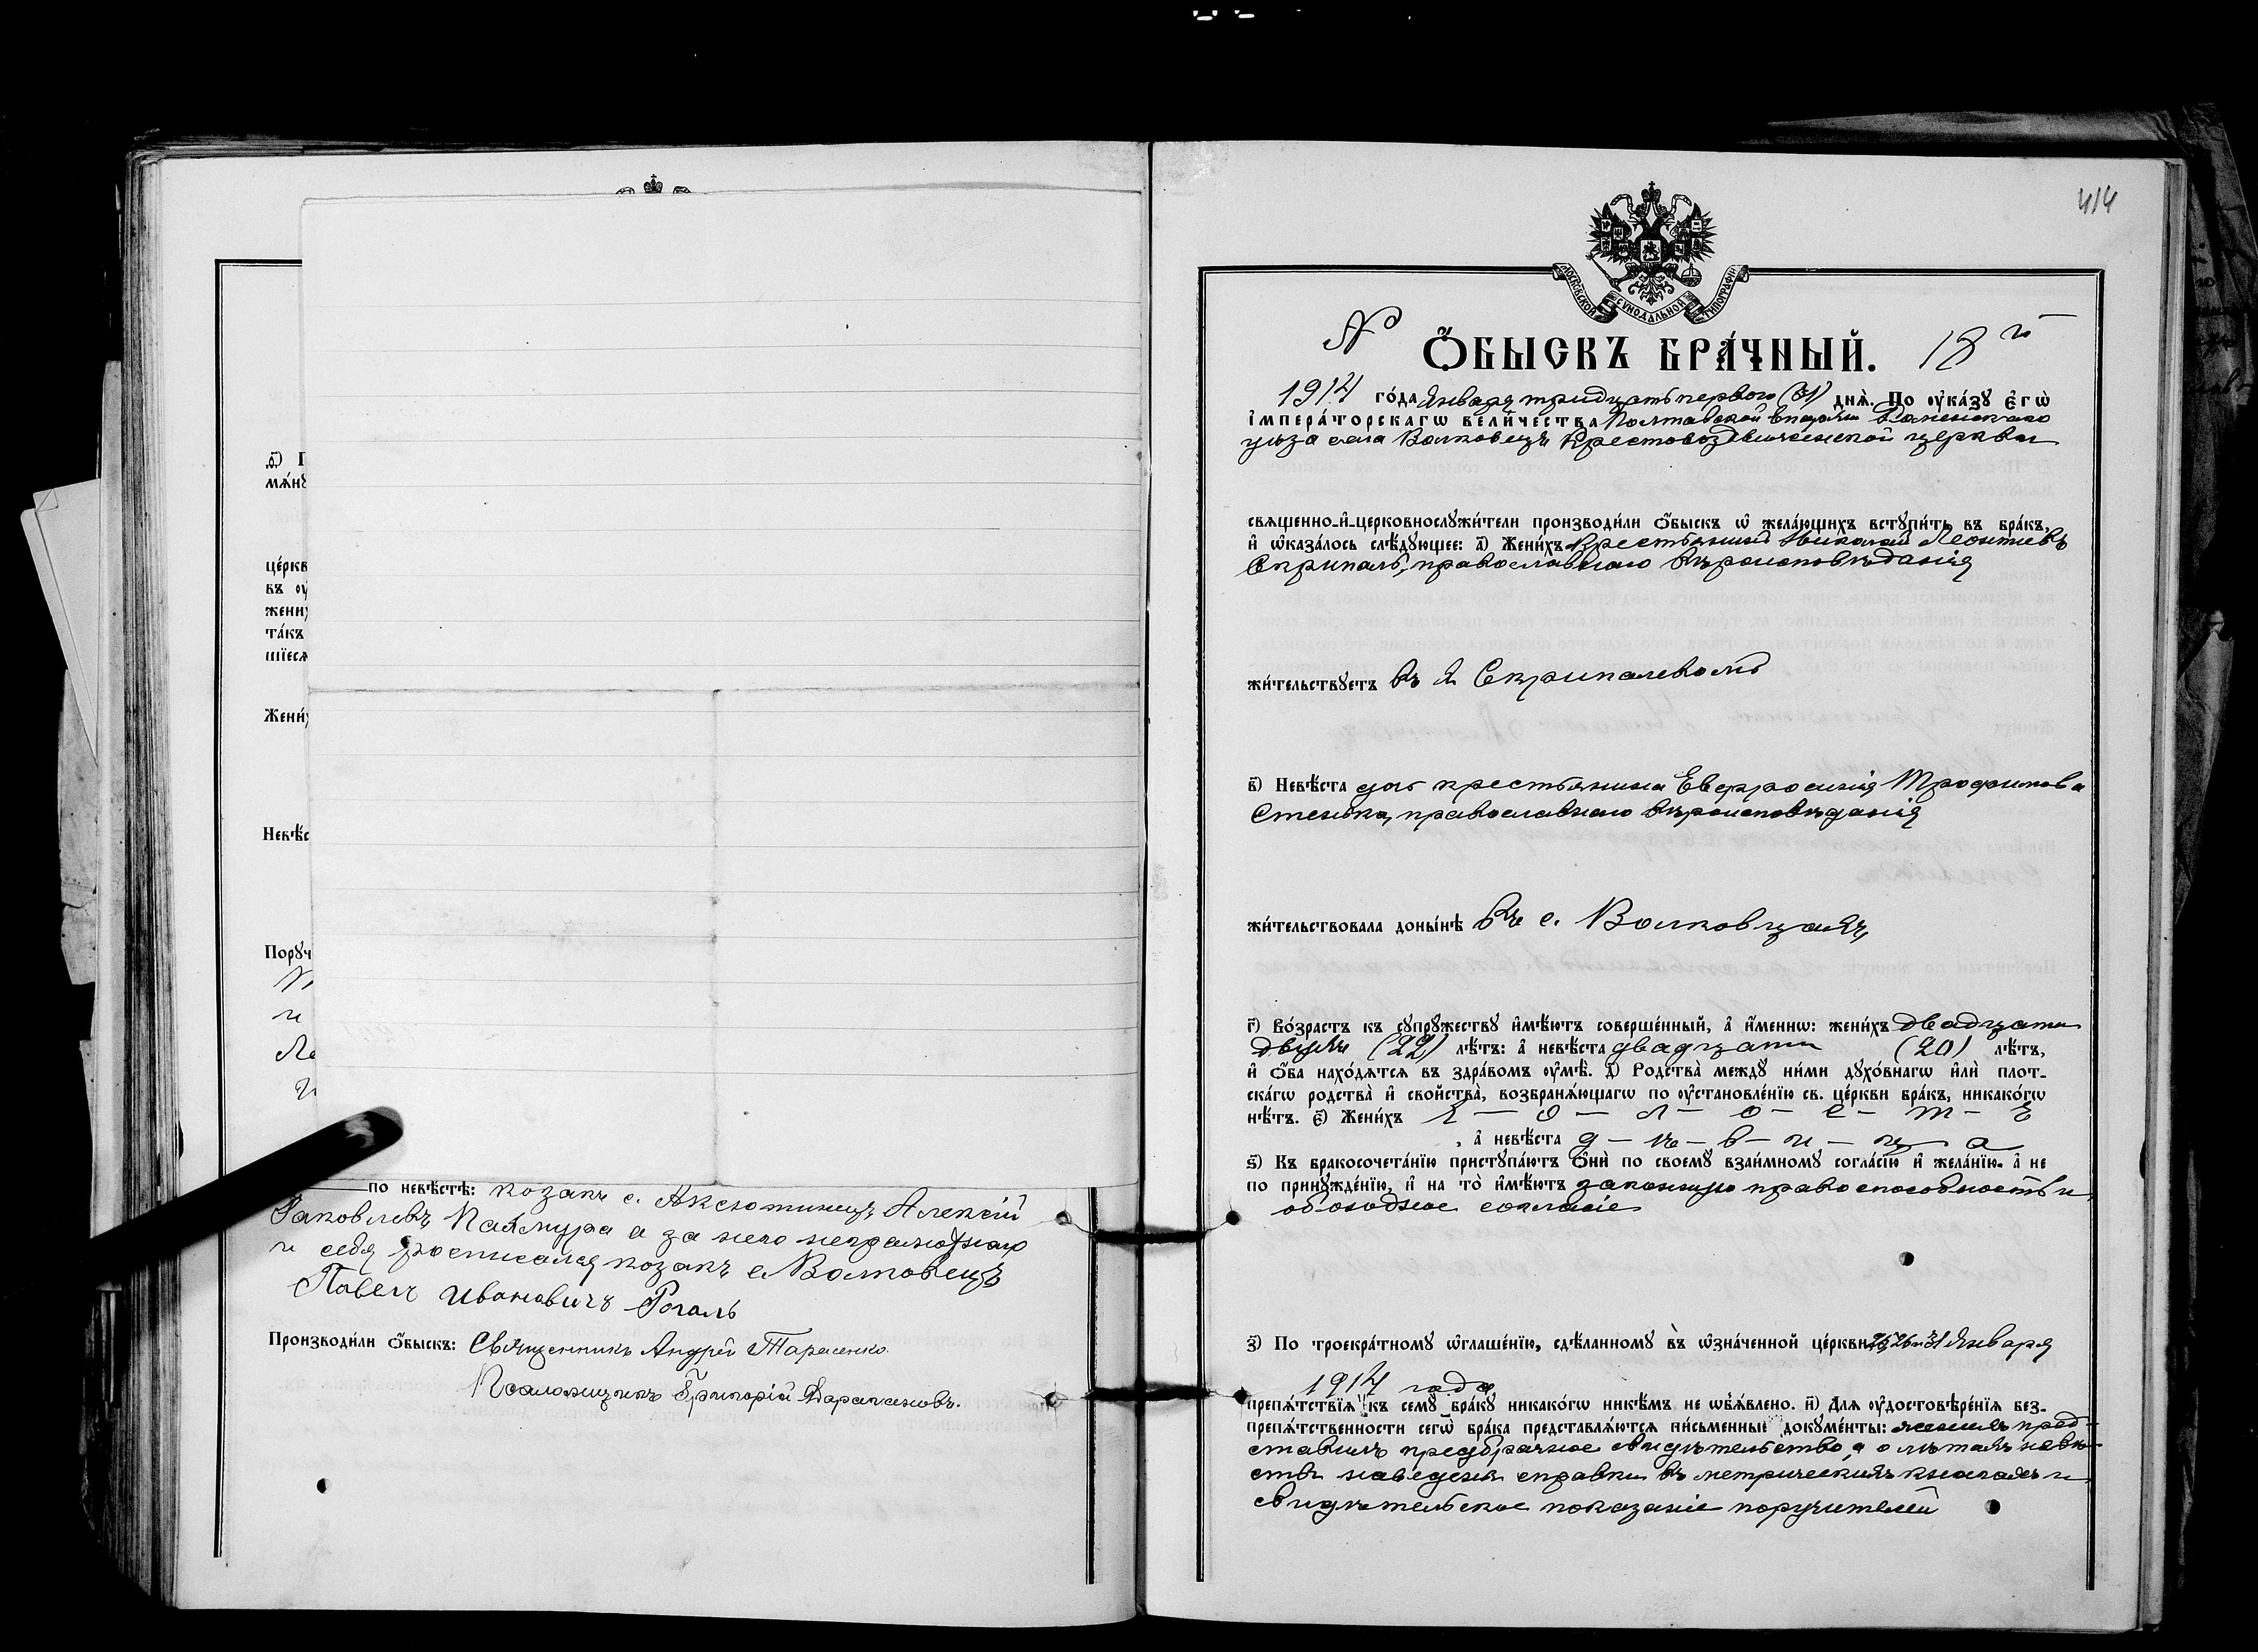 а҃) П
мѧ́нꙋ
це́ркв
въ оу҆
жени
та́къ
шїесѧ
Жени́х
Невѣ́с
Порꙋч
и
Ле
по невѣ́стѣ: козакъ с. Аксютинецъ Алексій
Іаковлевъ Пахмура а за него неграмотнаго
и себя росписался козакъ с. Волковецъ
Павелъ Ивановичъ Рогаль
Производи́ли ѻ҆́быскъ: Священникъ Андрей Тарасенко.
Псаломщикъ Григорій Барагановъ.
414
МОСКОВСКОЙ СѴНОДАЛЬНОЙ ТИПОГРАФІИ
№ Ѻ҆́БЫСКЪ БРА́ЧНЫЙ. 18 й
1914 го́да Января тридцать перваго (31) днѧ̀. По оу҆ка́зꙋ Є҆гѡ̀
і҆мпера́торскагѡ вели́чества Полтавской епархіи Роменскаго
уѣзда села Волковецъ Крестовоздвиженской церкви
свѧщенно-и҆-церковнослꙋжи́тели производи́ли ѻ҆́быскъ ѡ҆ жела́ющихъ встꙋпи́ть въ бра́къ,
и҆ ѡ҆каза́лось слѣ́дꙋющее: а҃) Жени́хъ крестьянинъ Николай Леонтіевъ
Скрипаль, православнаго вѣроисповѣданія
жи́тельствꙋетъ въ д. Скрипалевомъ
в҃) Невѣ́ста дочь крестьянина Евфросинія Трофимова
Стенька, православнаго вѣроисповѣданія
жи́тельствовала доны́нѣ въ с. Волковцахъ
г҃) Во́зрастъ къ сꙋпрꙋ́жествꙋ и҆мѣ́ютъ соверше́нный, а҆ и҆́меннѡ: жени́хъ двадцати
двухъ (22) лѣ́тъ: а҆ невѣ́ста двадцати (20) лѣ́тъ,
и҆ ѻ҆́ба нахо́дѧтсѧ въ здра́вомъ оу҆мѣ̀. д҃) Родства̀ междꙋ ни́ми дꙋхо́внагѡ и҆лѝ плот-
ска́гѡ родства̀ и҆ свойства̀, возбранѧ́ющагѡ по оу҆становле́нїю св. це́ркви бра́къ, никако́гѡ
нѣ́тъ. є҃) Жени́хъ х — о — л — о — с — т — ъ
, а҆ невѣ́ста д — ѣ — в — и — ц — а
ѕ҃) Къ бракосочета́нїю пристꙋпа́ютъ ѻ҆нѝ по своемꙋ̀ взаи́мномꙋ согла́сїю и҆ жела́нїю. а҆ не
по принꙋжде́нїю, и҆ на то̀ и҆мѣ́ютъ законную правоспособность и
обоюдное согласіе
з҃) По троекра́тномꙋ ѡ҆глаше́нїю, сдѣ́ланномꙋ въ ѡ҆зна́ченной це́ркви 25, 26 и 31 Января
1914 года
препѧ́тствїѧ къ семꙋ̀ бра́кꙋ никако́гѡ никѣ́мъ не ѡ҆б̾ѧ́влено. и҃) Длѧ оу҆достовѣре́нїѧ без-
препѧ́тственности сегѡ̀ бра́ка представлѧ́ютсѧ пи́сьменные докꙋме́нты: женихъ пред-
ставилъ предбрачное свидѣтельство, а о лѣтахъ невѣ-
сты наведены справки въ метрическихъ книгахъ и
свидѣтельское показаніе поручителей